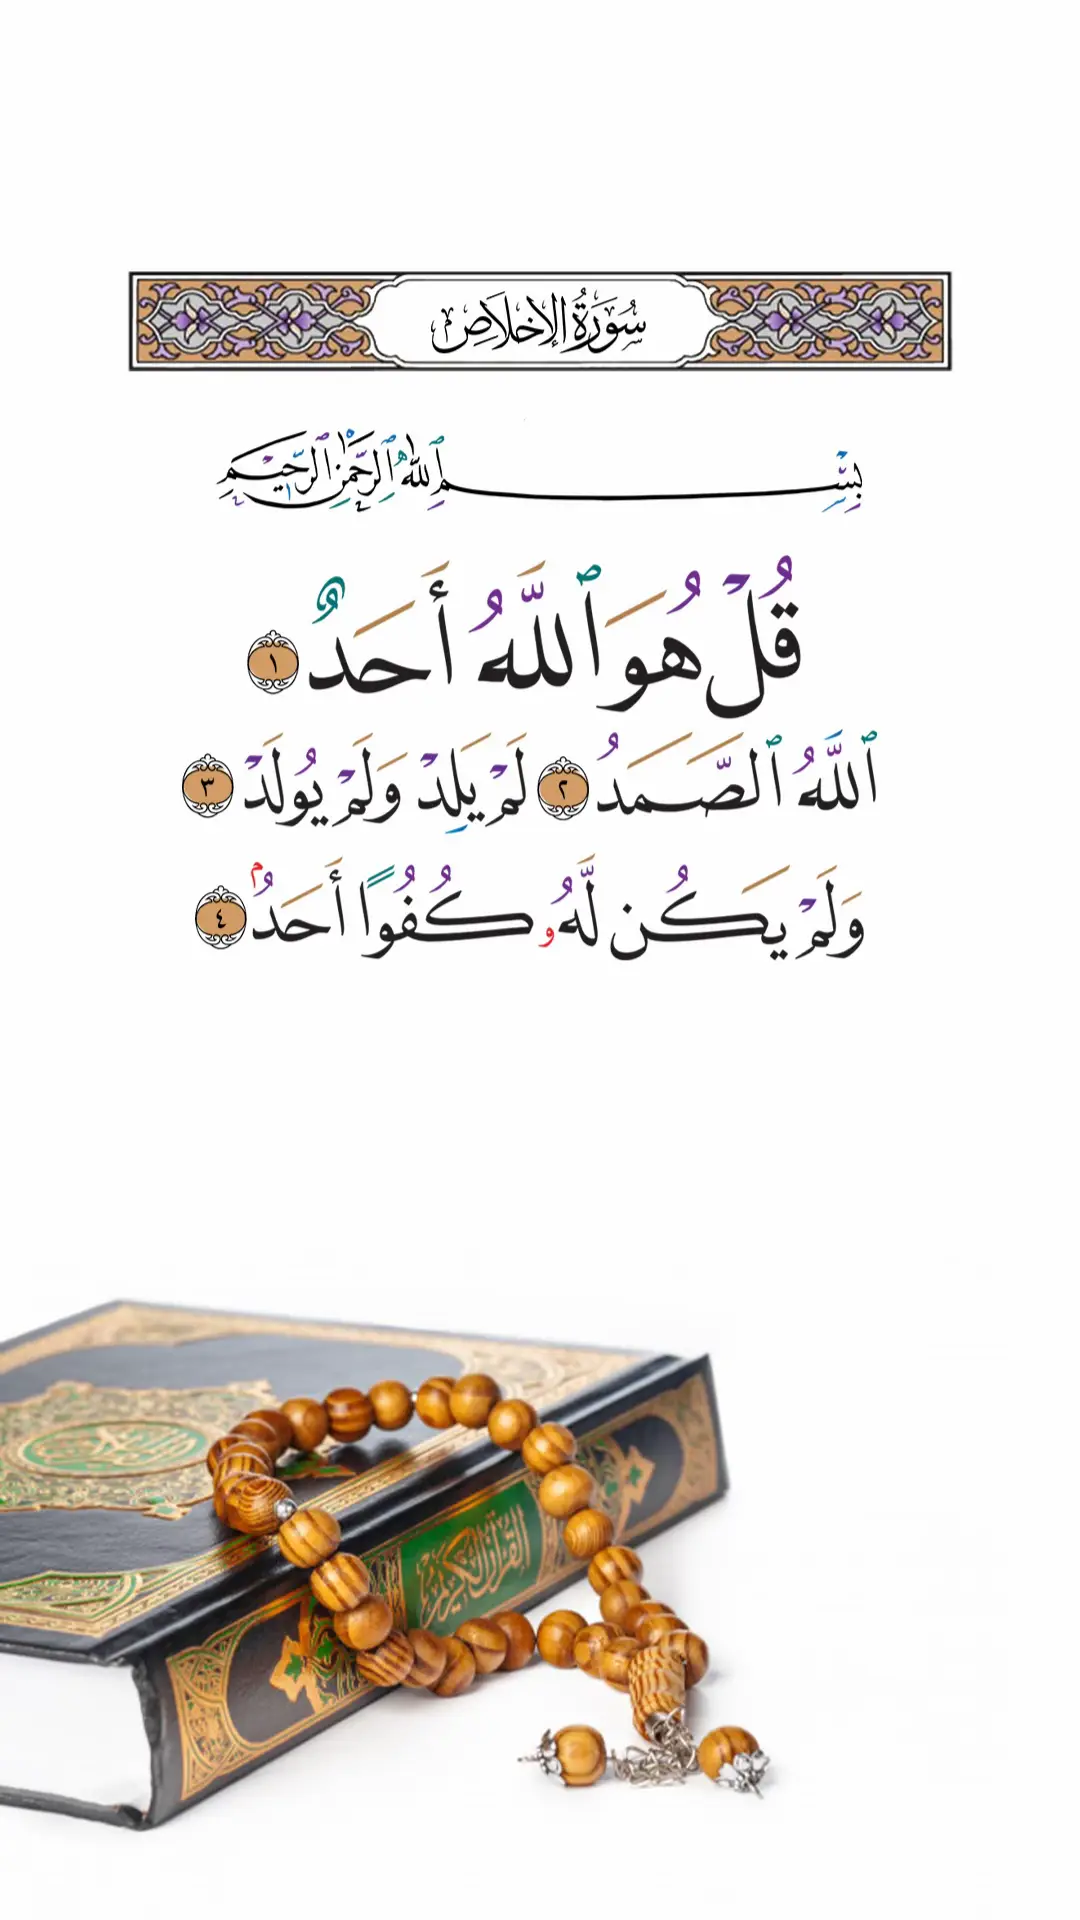 سُورَةُ الإِخْلَاصِ
بِسْمِ ٱللَّهِ ٱلرَّحْمَٰنِ ٱلرَّحِيمِ
قُلْ هُوَ ٱللَّهُ أَحَدٌ ١
ٱللَّهُ ٱلصَّمَدُ ٢ لَمْ يَلِدْ وَلَمْ يُولَدْ ٣
وَلَمْ يَكُن لَّهُۥ كُفُوًا أَحَدُۢ ٤
القرآن الكريم